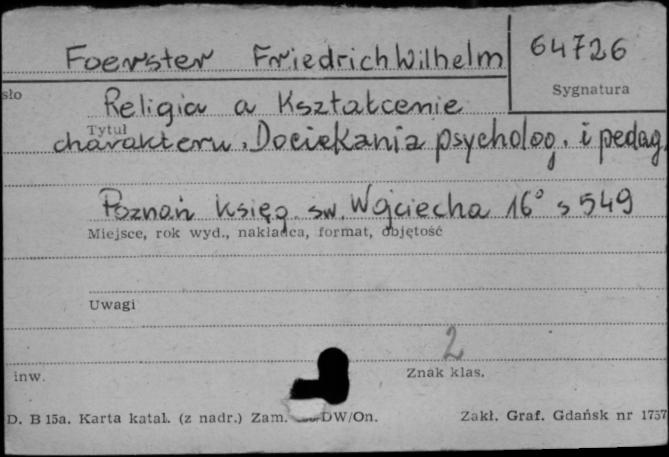 Foerster Friedrich Wilhelm 64726
sło Sygnatura
Religia a Kształcenie
Tytuł
charakteru. Dociekania psycholog. i pedag.
Poznań Księg. św. Wojciecha 16° s 549
Miejsce, rok wyd., nakładca, format, objętość
Uwagi
2
inw. Znak klas.
D. B 15a. Karta katal. (z nadr.) Zam. DW/On. Zakł. Graf. Gdańsk nr 1757